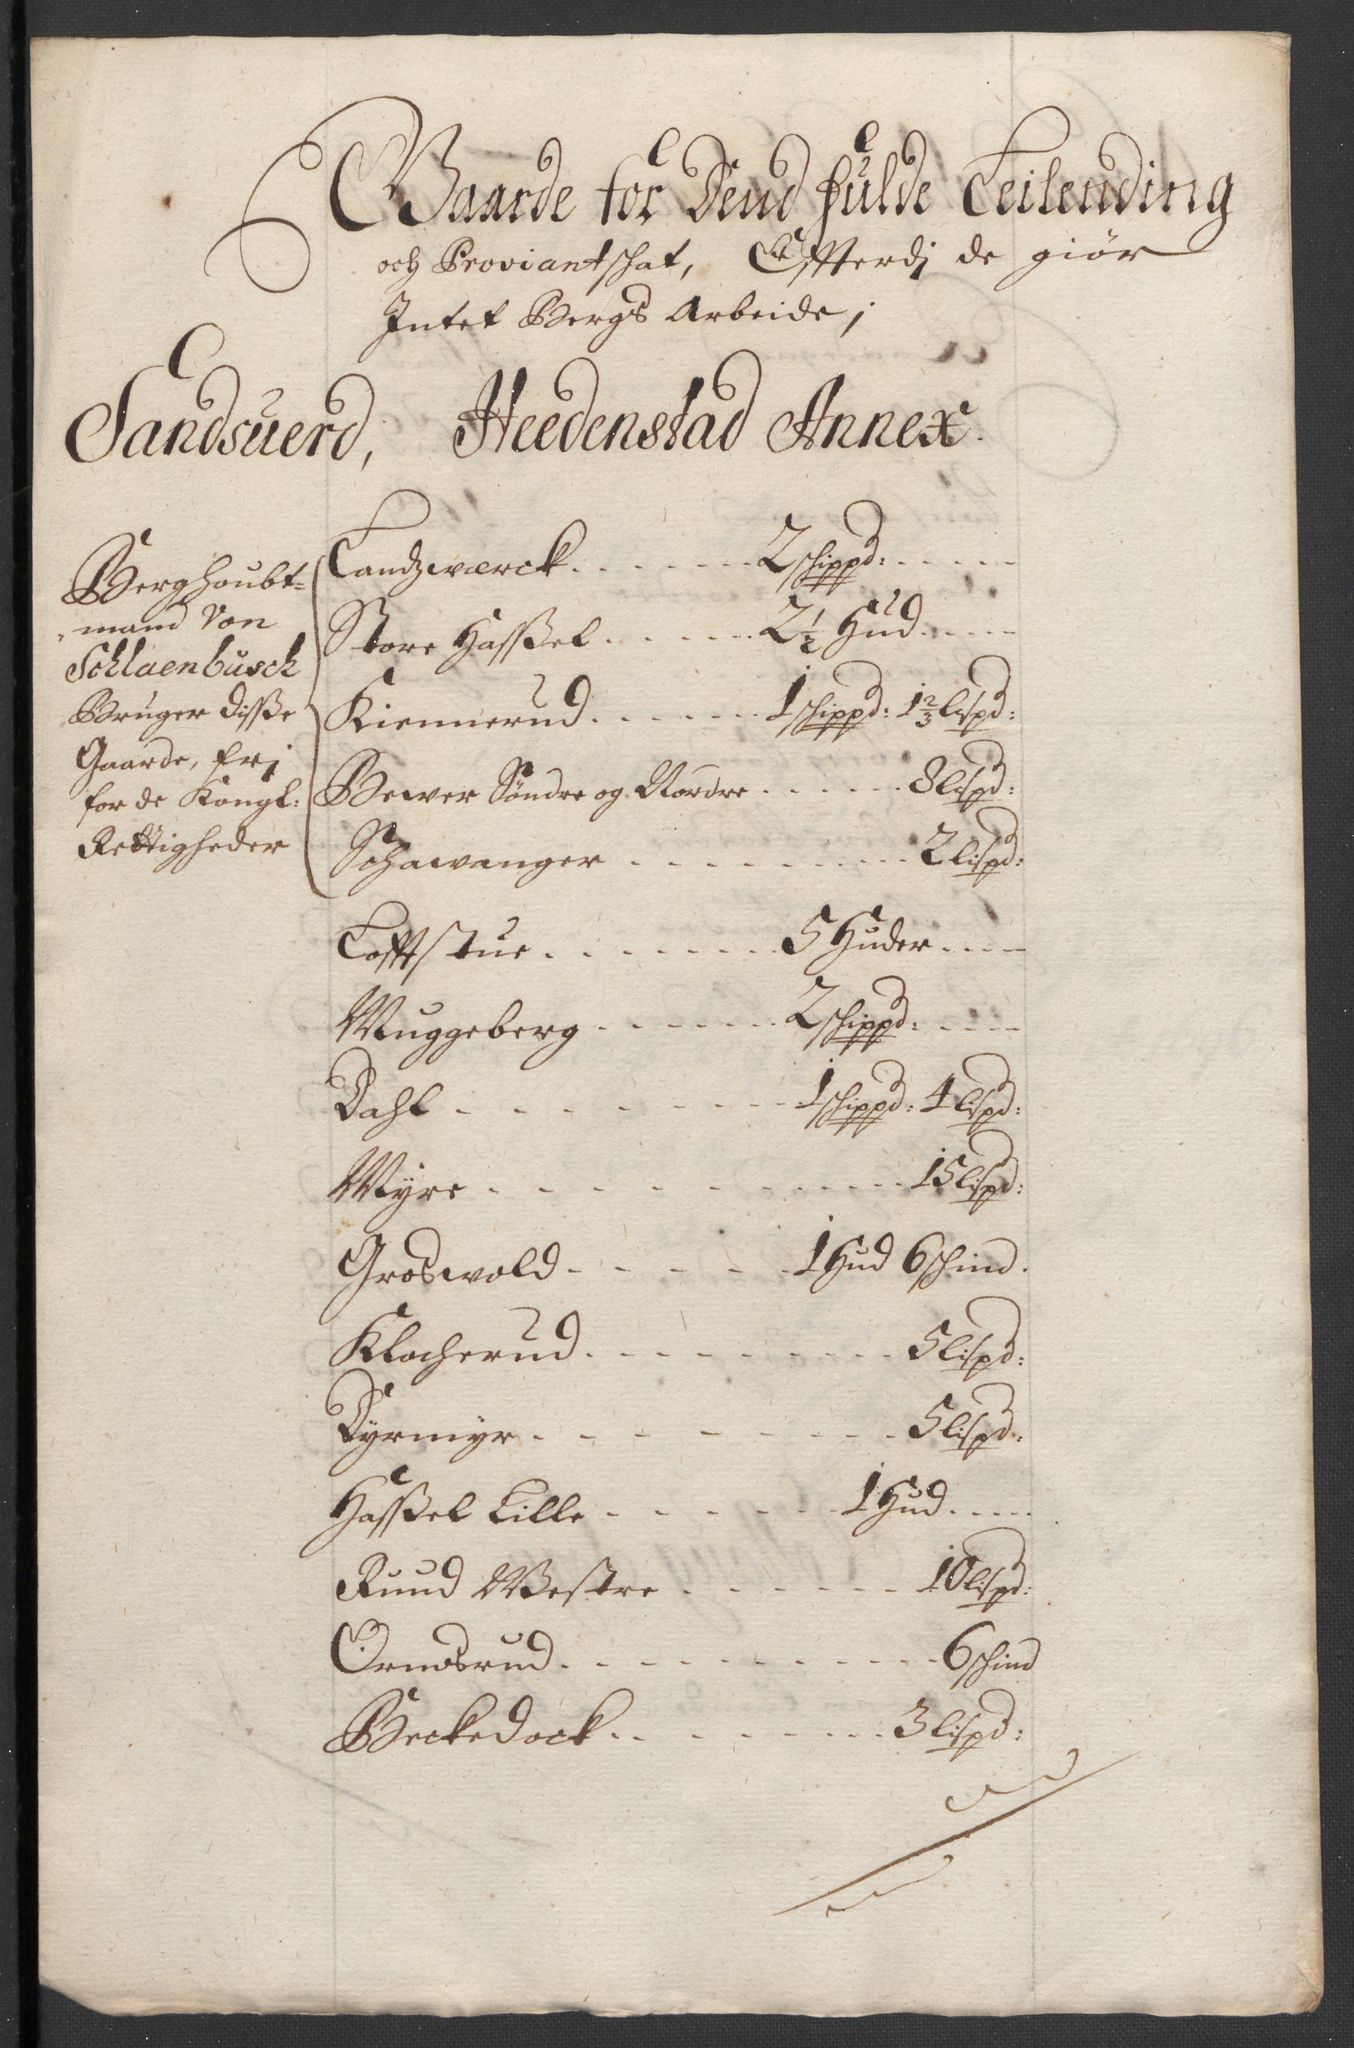 Gaarde for Dend fulde Leilending
och Proviantschat, Effterdj de giör
Intet Bergs Arbeide,
Sandsuerd, Heedenstad Annex.
Berghoubt=
mand Von
Schlaenbusch
Bruger disse
Gaarde, frj
for de Kongl:
Rettigheder
Landzwærck . . . . . . . 2 schippd: . . . . .
Store Hassel . . . . . . 2½ Hud . . . . .
Kiennerud . . . . . . 1 schippd: 1⅔ lispd:
Bewer Söndre og Nordre . . . . . . 8 lispd:
Schawanger . . . . . . . . . 2 lispd:
Lofftstue . . . . . . . 5 Huder . . . .
Muggeberg . . . . . . 2 schippd: . . . .
Dahl . . . . . . . . 1 schippd: 4 lispd:
Myre . . . . . . . . . . . . 15 lispd:
Groswold . . . . . 1 Hud 6 schind.
Klocherud . . . . . . . . . 5 lispd:
Dyrmyr . . . . . . . . . 5 lispd:
Hassel Lille . . . . . . 1 Hud . . . . .
Ruud Westre . . . . . . . 10 lispd:
Ornosrud . . . . . . . . . . . 6 schind
Beckedock . . . . . . . . . 3 lispd: